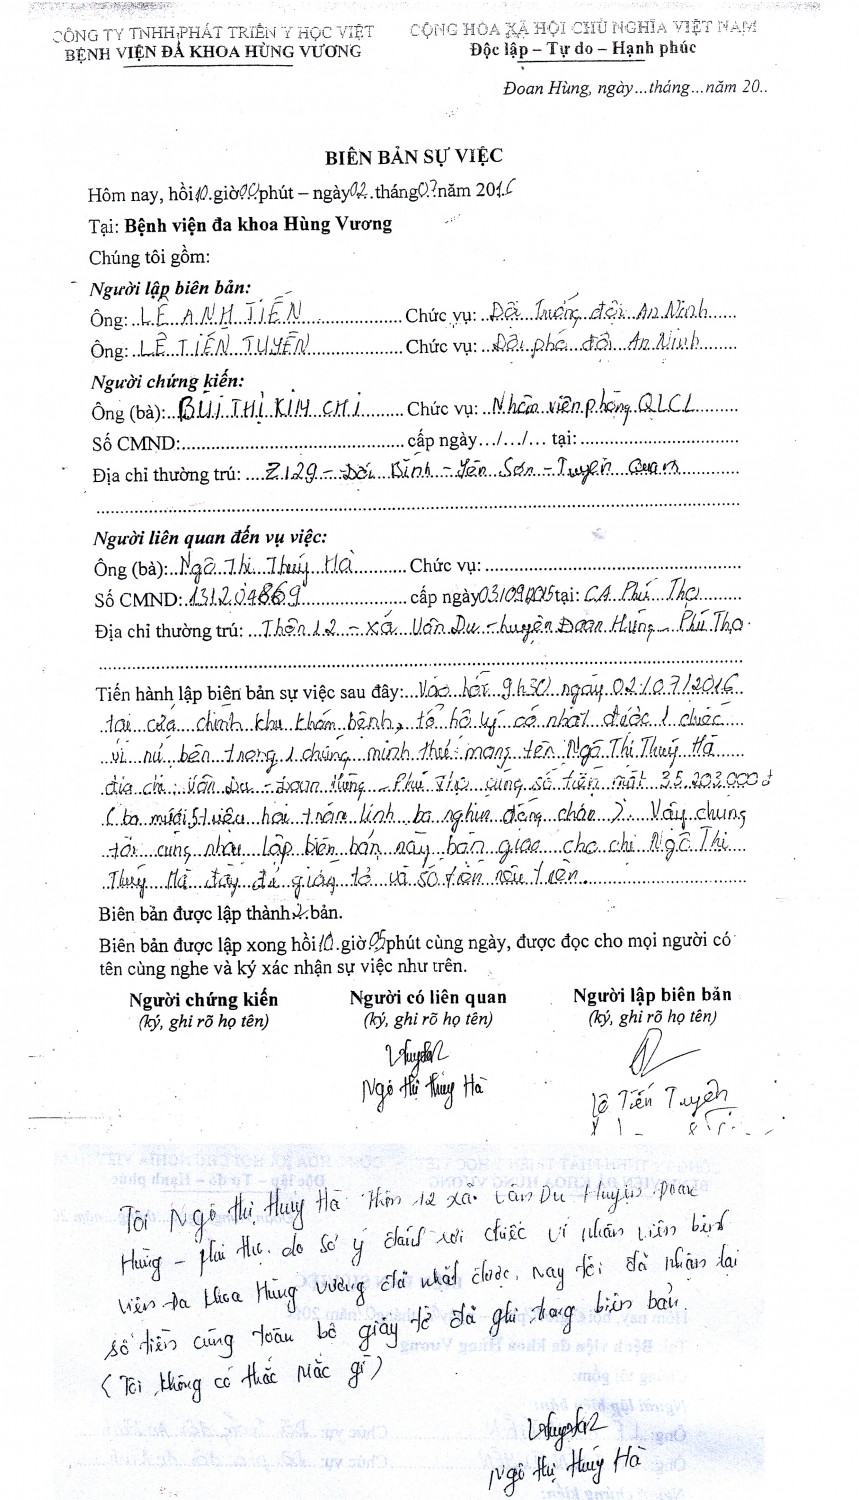 CÔNG TY TNHH PHÁT TRIỂN Y HỌC VIỆT
BỆNH VIỆN ĐA KHOA HÙNG VƯƠNG
CỘNG HÒA XÃ HỘI CHỦ NGHĨA VIỆT NAM
Độc lập – Tự do – Hạnh phúc
Đoan Hùng, ngày...tháng...năm 20..
BIÊN BẢN SỰ VIỆC
Hôm nay, hồi 10 giờ 00 phút – ngày 02 tháng 07 năm 2016
Tại: Bệnh viện đa khoa Hùng Vương
Chúng tôi gồm:
Người lập biên bản:
Ông: LÊ ANH TIẾN Chức vụ: Đội Trưởng đội An Ninh
Ông: LÊ TIẾN TUYỂN Chức vụ: Đội phó đội An Ninh
Người chứng kiến:
Ông (bà): BÙI THỊ KIM CHI Chức vụ: Nhân viên phòng QLCL
Số CMND: cấp ngày .../.../... tại:
Địa chỉ thường trú: Z129 - Đội Bình - Yên Sơn - Tuyên Quang
Người liên quan đến vụ việc:
Ông (bà): Ngô Thị Thúy Hà Chức vụ:
Số CMND: 131204869 cấp ngày 03/09/2015 tại: CA Phú Thọ
Địa chỉ thường trú: Thôn 12 - xã Vân Du - huyện Đoan Hùng - Phú Thọ
Tiến hành lập biên bản sự việc sau đây: Vào hồi 9h30 ngày 02/07/2016
tại cửa chính khu khám bệnh, tổ hộ lý có nhặt được 1 chiếc
ví nữ bên trong 1 chứng minh thư mang tên Ngô Thị Thúy Hà
địa chỉ: Vân Du - Đoan Hùng - Phú Thọ cùng số tiền mặt 35.203.000đ
(ba mươi 5 triệu hai trăm linh ba nghìn đồng chẵn). Vậy chúng
tôi cùng nhau lập biên bản này bàn giao cho chị Ngô Thị
Thúy Hà đầy đủ giấy tờ và số tiền nêu trên.
Biên bản được lập thành 2 bản.
Biên bản được lập xong hồi 10 giờ 05 phút cùng ngày, được đọc cho mọi người có
tên cùng nghe và ký xác nhận sự việc như trên.
Người chứng kiến Người có liên quan Người lập biên bản
(ký, ghi rõ họ tên) (ký, ghi rõ họ tên) (ký, ghi rõ họ tên)
Ngô thị thúy Hà
Lê Tiến Tuyển
Tôi Ngô thị thúy Hà thôn 12 xã Vân Du Huyện Đoan
Hùng - phú thọ. do sơ ý đánh rơi chiếc ví nhân viên bệnh
viện Đa khoa Hùng vương đã nhặt được. nay tôi đã nhận lại
số tiền cùng toàn bộ giấy tờ đã ghi trong biên bản.
(Tôi không có thắc mắc gì)
Ngô thị thúy Hà